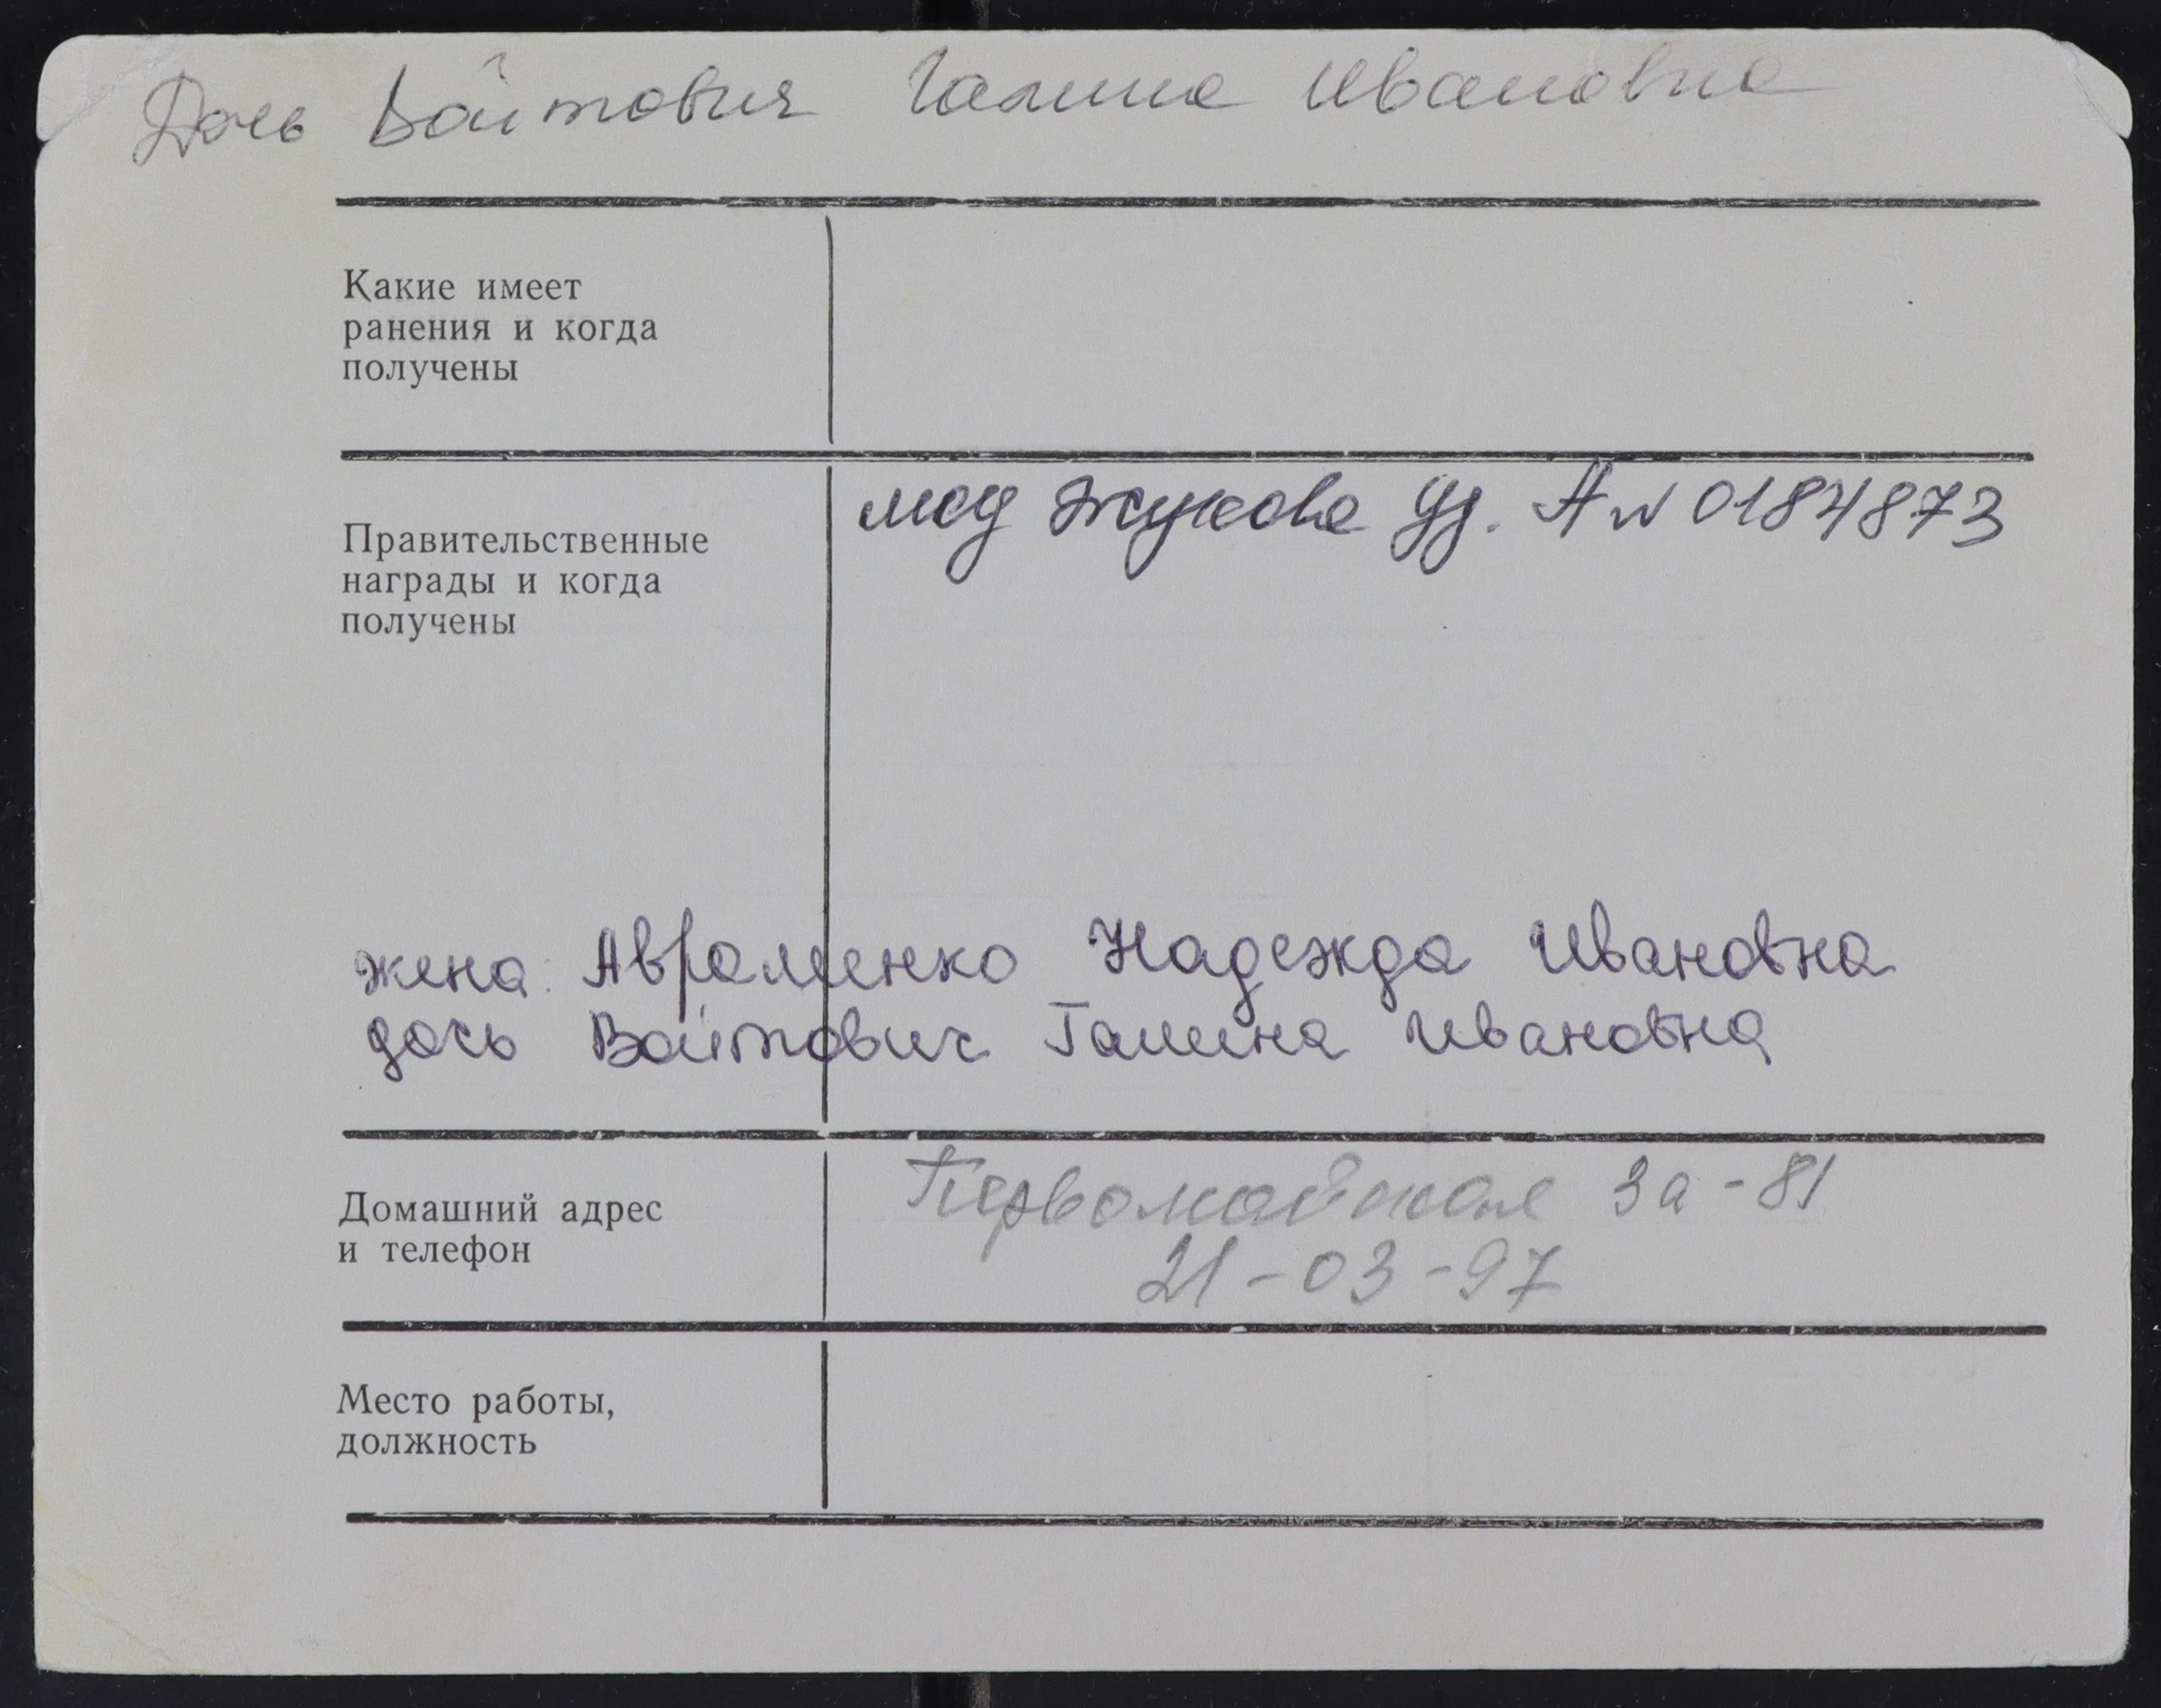 Дочь Войтович Галина Ивановна
Какие имеет
ранения и когда
получены
мед Жукова уд. А № 0184873
Правительственные
награды и когда
получены
жена: Авраменко Надежда Ивановна
дочь Войтович Галина Ивановна
Первомайская 3а-81
21-03-97
Домашний адрес
и телефон
Место работы,
должность